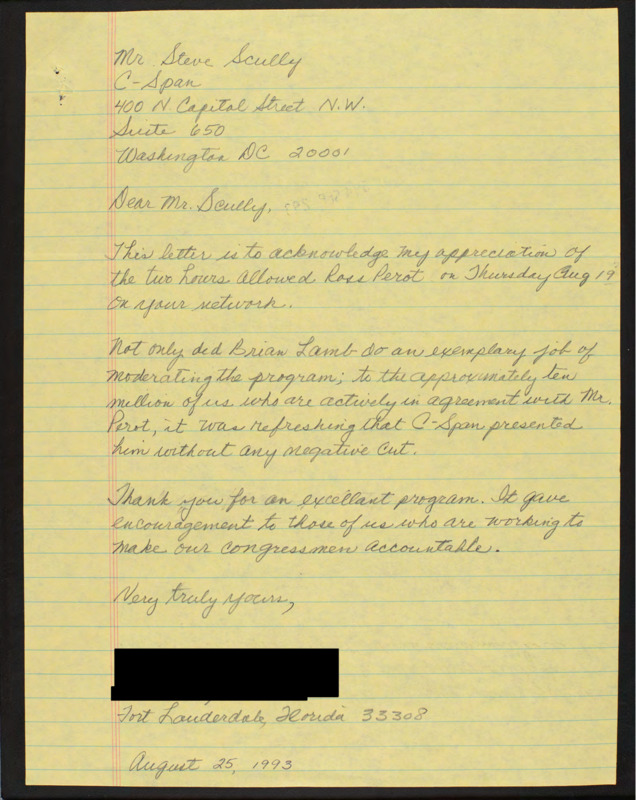 Mr. Steve Scully
C-Span
400 N Capital Street N.W.
Suite 650
Washington DC 20001
Dear Mr. Scully,
This letter is to acknowledge my appreciation of
the two hours allowed Ross Perot on Thursday Aug 19
on your network.
Not only did Brian Lamb do an exemplary job of
moderating the program; to the approximately ten
million of us who are actively in agreement with Mr.
Perot, it was refreshing that C-Span presented
him without any negative cut.
Thank you for an excellant program. It gave
encouragement to those of us who are working to
make our congressmen accountable.
Very truly yours,
Fort Lauderdale, Florida 33308
August 25, 1993